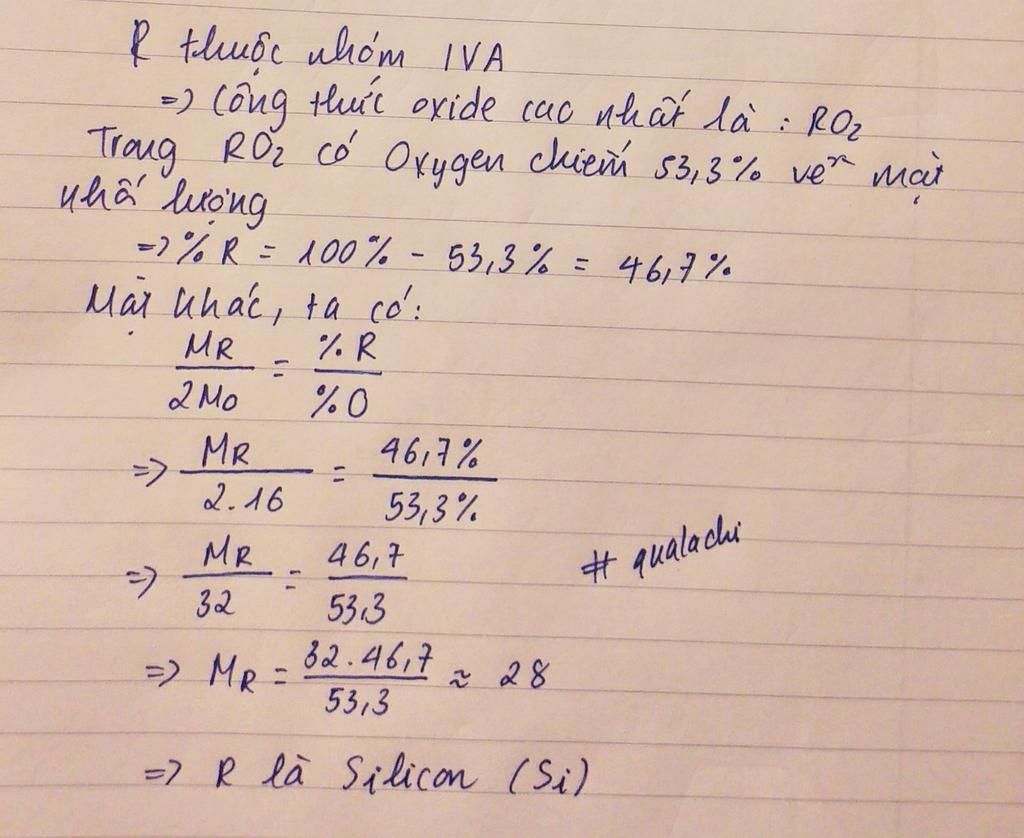 R thuộc nhóm IVA
=> Công thức oxide cao nhất là : RO₂
Trong RO₂ có Oxygen chiếm 53,3% về mặt
khối lượng
=> % R = 100% - 53,3% = 46,7%
Mặt khác, ta có:
MR/2MO = %R/%O
=> MR/2.16 = 46,7%/53,3%
=> MR/32 = 46,7/53,3
# qualachi
=> MR = 32.46,7/53,3 ≈ 28
=> R là Silicon (Si)